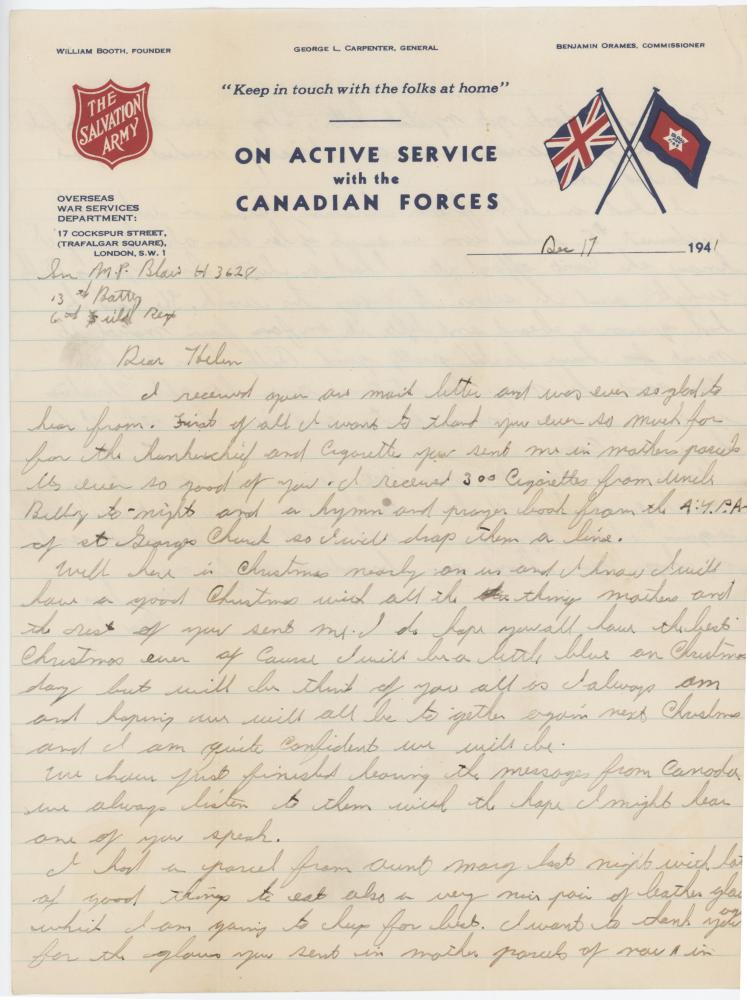 WILLIAM BOOTH, FOUNDER
GEORGE L. CARPENTER, GENERAL
BENJAMIN ORAMES, COMMISSIONER
THE
SALVATION
ARMY
"Keep in touch with the folks at home"
ON ACTIVE SERVICE
with the
CANADIAN FORCES
OVERSEAS
WAR SERVICES
DEPARTMENT:
17 COCKSPUR STREET,
(TRAFALGAR SQUARE),
LONDON, S.W. 1
Dec 17 1941
M.P. Blair H 3628
13th Batty
6th Field Reg
Dear Helen
I received your air mail letter and was ever so glad to
hear from. First of all I want to thank you ever so much for
for the hankerchief and Cigarette you sent me in mothers parcels
Its ever so good of you. I received 300 Cigarettes from Uncle
Billy to-night and a hymn and prayer book from the A.Y.P.A
of st Georges Church so I will drop them a line.
Well here is Christmas nearly on us and I know I will
have a good Christmas with all the things mother and
the rest of you sent me. I do hope you all have the best
Christmas ever of Course I will be a little blue on Christmas
day but will be think of you all as I always am
and hoping we will all be to gether again next Christmas
and I am quite Confident we will be.
We have just finished hearing the messages from Canada
we always listen to them with the hope I might hear
one of you speak.
I had a parcel from Aunt Mary last night with lot
of good things to eat also a very nice pair of leather glov
which I am going to keep for best. I want to thank you
for the gloves you sent in mother parcels of now in